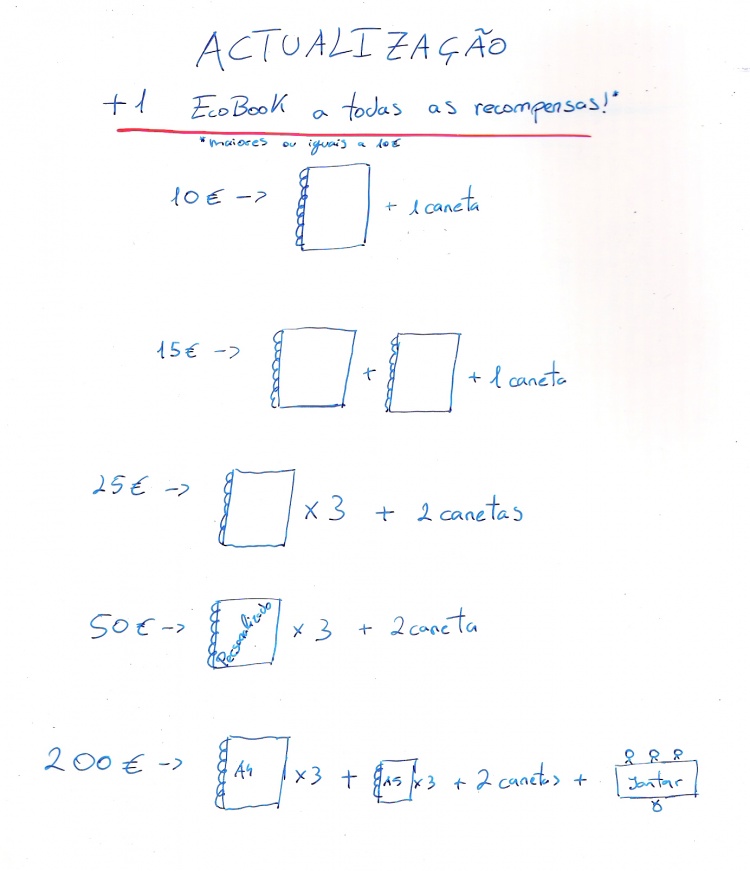 ACTUALIZAÇÃO
+1 EcoBook a todas as recompensas!*
*maiores ou iguais a 10€
10€ -> + 1 caneta
15€ -> + + 1 caneta
25€ -> x 3 + 2 canetas
50€ -> Personalizado x 3 + 2 caneta
200€ -> A4 x3 + A5 x3 + 2 canetas + Jantar